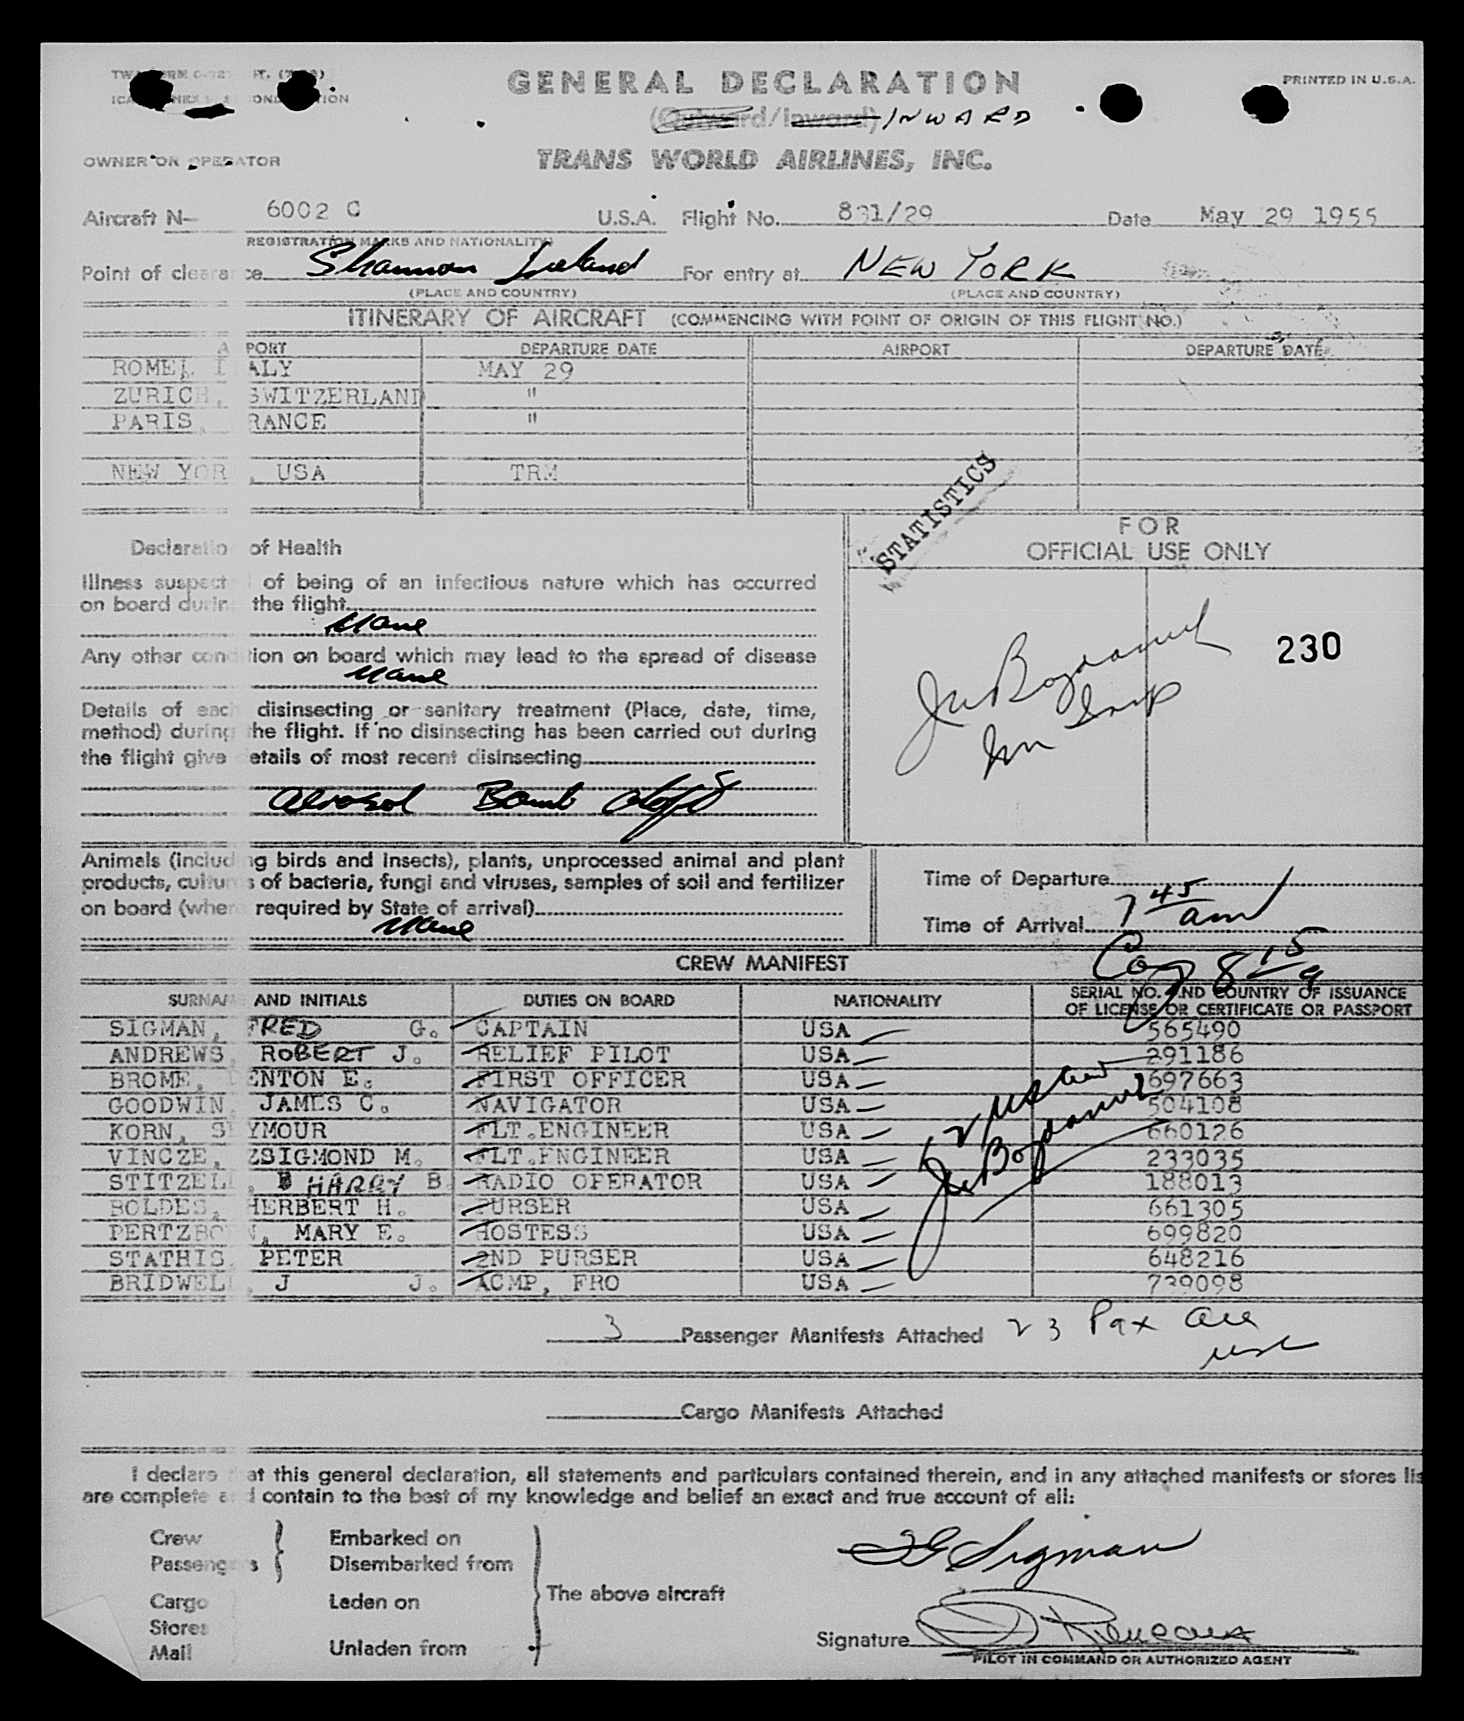 GENERAL DECLARATION
PRINTED IN U.S.A.
(Outward/Inward) INWARD
OWNER OR OPERATOR
TRANS WORLD AIRLINES, INC.
Aircraft N— 6002 C U.S.A. Flight No. 831/29 Date May 29 1955
REGISTRATION MARKS AND NATIONALITY)
Point of clearance Shannon Ireland For entry at NEW YORK
(PLACE AND COUNTRY) (PLACE AND COUNTRY)
ITINERARY OF AIRCRAFT (COMMENCING WITH POINT OF ORIGIN OF THIS FLIGHT NO.)
AIRPORT DEPARTURE DATE AIRPORT DEPARTURE DATE
ROME, ITALY MAY 29
ZURICH, SWITZERLAND "
PARIS, FRANCE "
NEW YORK, USA TRM
STATISTICS
FOR
OFFICIAL USE ONLY
Declaration of Health
Illness suspected of being of an infectious nature which has occurred
on board during the flight
None
Any other condition on board which may lead to the spread of disease
None
230
Details of each disinsecting or sanitary treatment (Place, date, time,
method) during the flight. If no disinsecting has been carried out during
the flight give details of most recent disinsecting
Aerosol Bomb
Animals (including birds and insects), plants, unprocessed animal and plant
products, cultures of bacteria, fungi and viruses, samples of soil and fertilizer
on board (where required by State of arrival)
None
Time of Departure
Time of Arrival 7 45 am
8 15 a
CREW MANIFEST
SURNAME AND INITIALS DUTIES ON BOARD NATIONALITY SERIAL NO. AND COUNTRY OF ISSUANCE
OF LICENSE OR CERTIFICATE OR PASSPORT
SIGMAN, FRED G. CAPTAIN USA 565490
ANDREWS, ROBERT J. RELIEF PILOT USA 291186
BROME, DENTON E. FIRST OFFICER USA 697663
GOODWIN, JAMES C. NAVIGATOR USA 504108
KORN, SEYMOUR FLT.ENGINEER USA 660126
VINCZE, ZSIGMOND M. FLT.ENGINEER USA 233035
STITZELL, HARRY B RADIO OPERATOR USA 188013
BOLDES, HERBERT H. PURSER USA 661305
MARY E. HOSTESS USA 699820
STATHIS, PETER 2ND PURSER USA 648216
BRIDWELL, J J. ACMP, FRO USA 739098
3 Passenger Manifests Attached 23 Pax
Cargo Manifests Attached
I declare that this general declaration, all statements and particulars contained therein, and in any attached manifests or stores lis
are complete and contain to the best of my knowledge and belief an exact and true account of all:
Crew Embarked on
Passengers Disembarked from
The above aircraft
Cargo Laden on
Stores
Mail Unladen from
FG Sigman
Signature
PILOT IN COMMAND OR AUTHORIZED AGENT